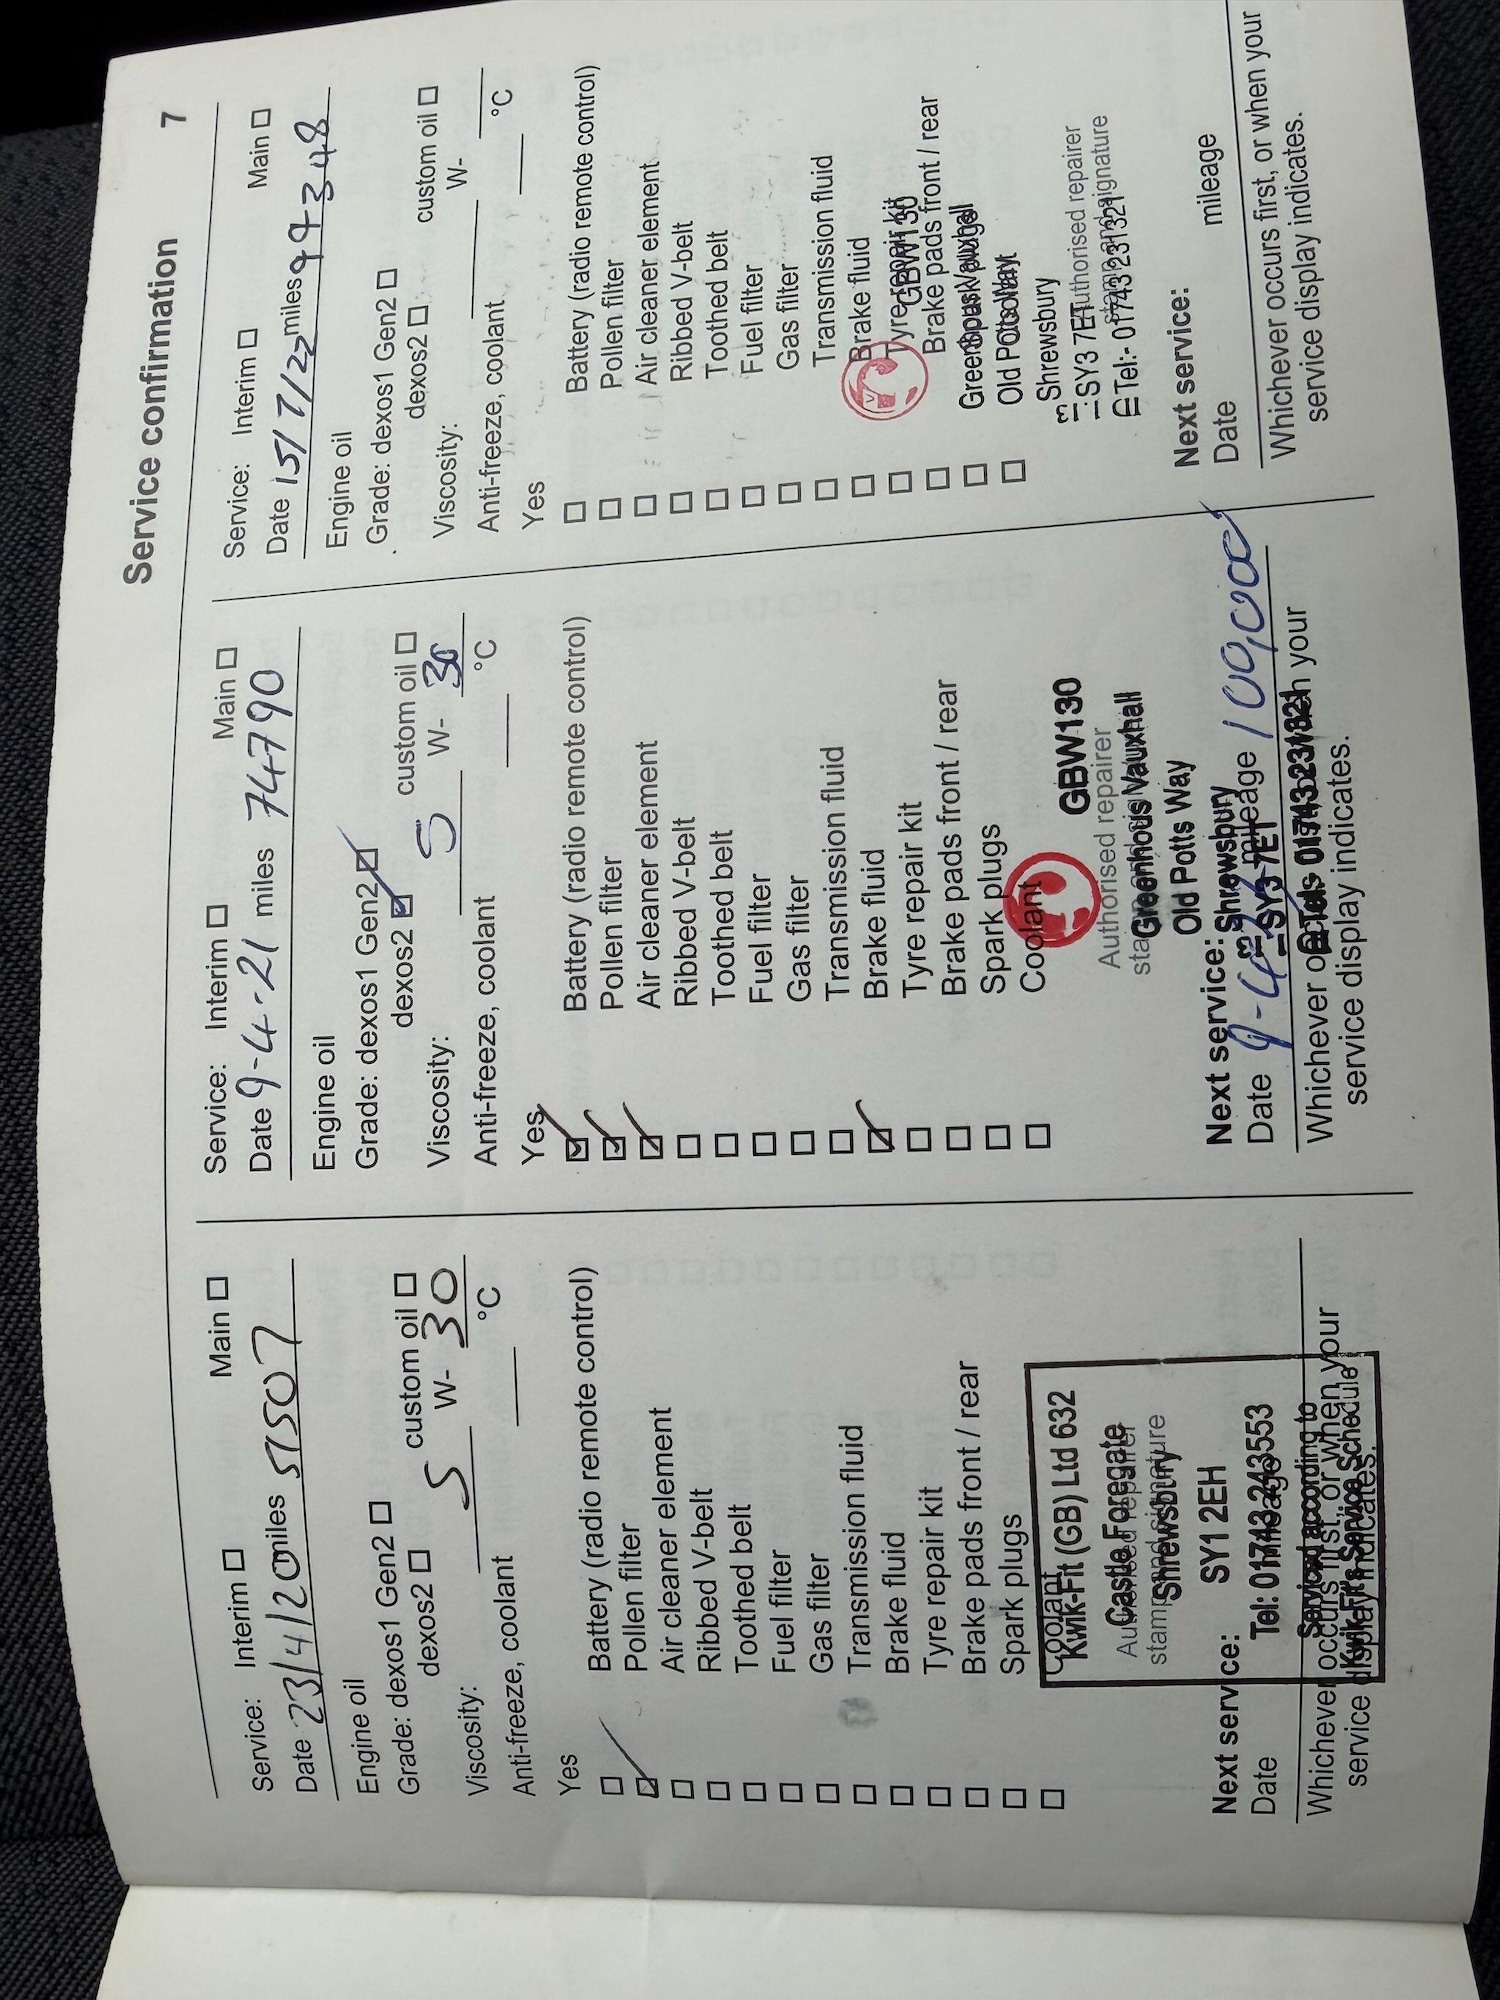 Service confirmation 7
Service: Interim Main
Date 23/4/20 miles 51507
Engine oil
Grade: dexos1 Gen2
dexos2 custom oil
Viscosity: 5 W- 30
Anti-freeze, coolant °C
Yes
Battery (radio remote control)
Pollen filter
Air cleaner element
Ribbed V-belt
Toothed belt
Fuel filter
Gas filter
Transmission fluid
Brake fluid
Tyre repair kit
Brake pads front / rear
Spark plugs
Coolant
Kwik-Fit (GB) Ltd 632
Castle Foregate
Authorised repairer
Shrewsbury
stamp and signature
SY1 2EH
Next service:
Tel: 01743 243553
Date mileage
Serviced according to
Kwik-Fit's Service Schedule
Whichever occurs first, or when your
service display indicates.
Service: Interim Main
Date 9-4-21 miles 74790
Engine oil
Grade: dexos1 Gen2
dexos2 custom oil
Viscosity: 5 W- 30
Anti-freeze, coolant °C
Yes
Battery (radio remote control)
Pollen filter
Air cleaner element
Ribbed V-belt
Toothed belt
Fuel filter
Gas filter
Transmission fluid
Brake fluid
Tyre repair kit
Brake pads front / rear
Spark plugs
Coolant
GBW130
Authorised repairer
Greenhous Vauxhall
Old Potts Way
Shrewsbury
SY3 7ET
Tel:- 01743 231321
Next service:
Date mileage 100,000
Whichever occurs first, or when your
service display indicates.
Service: Interim Main
Date 15/7/22 miles 99348
Engine oil
Grade: dexos1 Gen2
dexos2 custom oil
Viscosity: W-
Anti-freeze, coolant °C
Yes
Battery (radio remote control)
Pollen filter
Air cleaner element
Ribbed V-belt
Toothed belt
Fuel filter
Gas filter
Transmission fluid
Brake fluid
Tyre repair kit
GBW130
Brake pads front / rear
Spark plugs
Greenhous Vauxhall
Old Potts Way
Shrewsbury
SY3 7ET
Authorised repairer
stamp and signature
Tel:- 01743 231321
Next service:
Date mileage
Whichever occurs first, or when your
service display indicates.